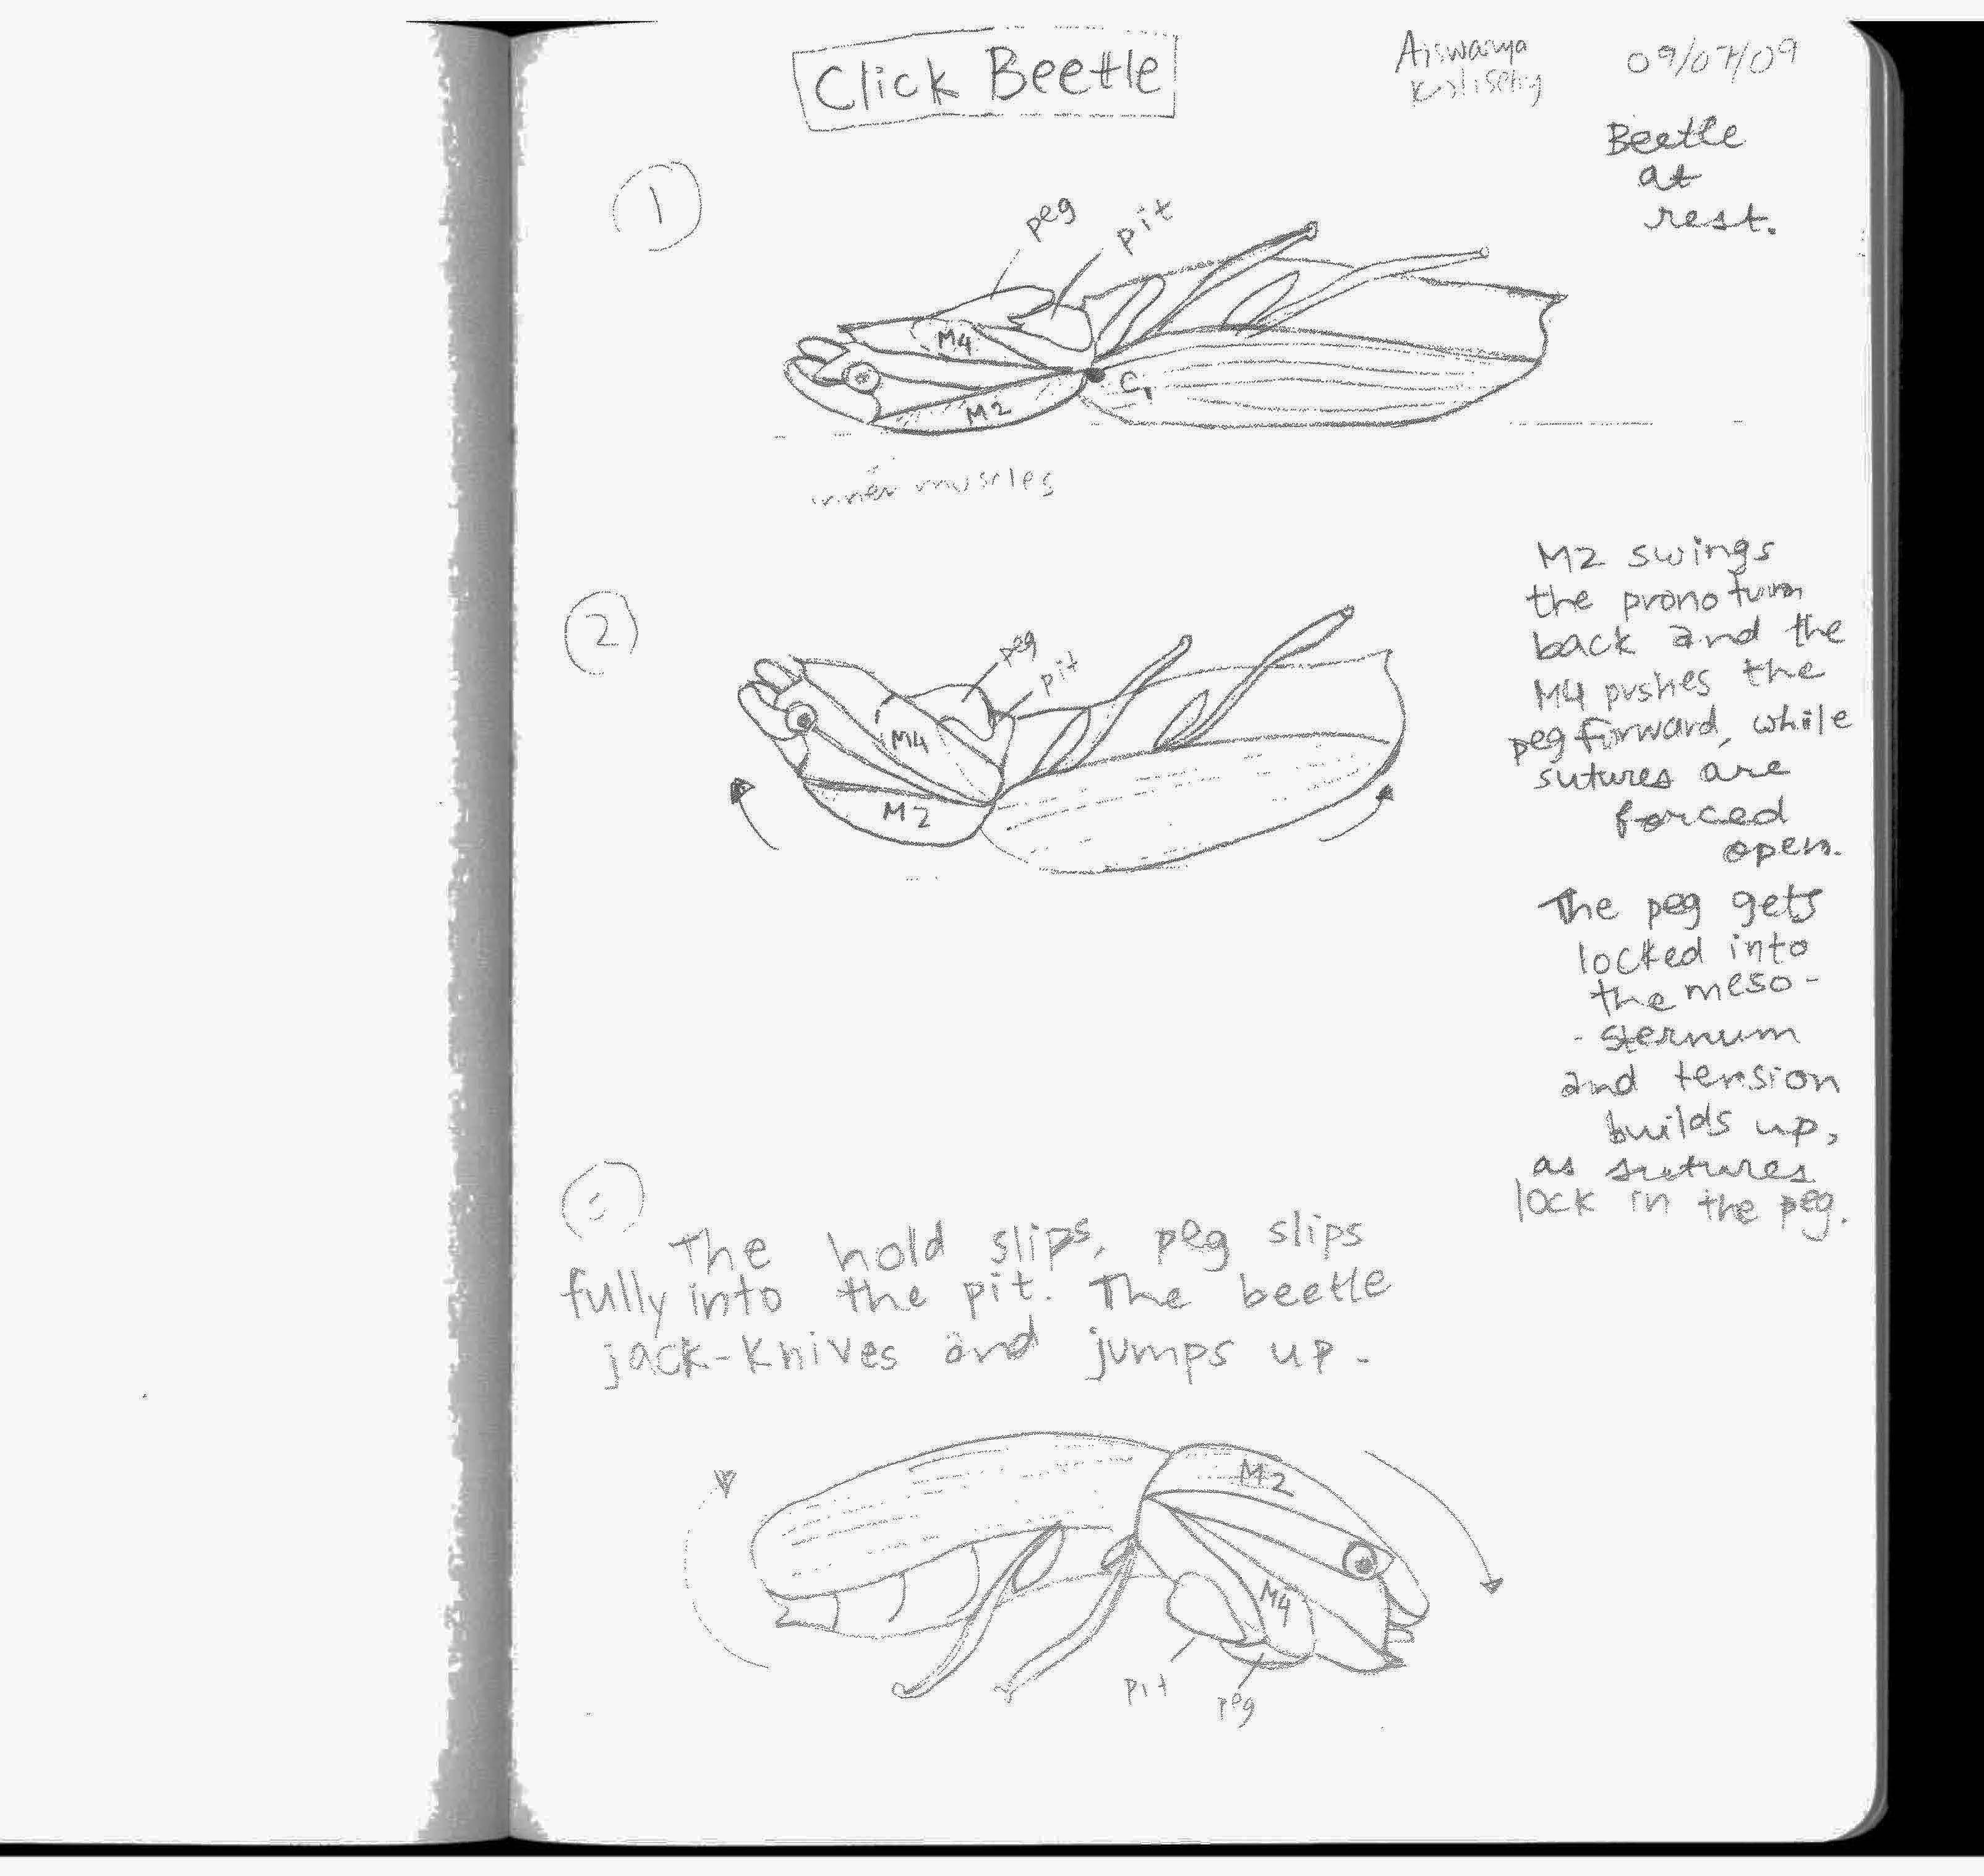 Click Beetle
Aiswarya
09/07/09
Beetle
at
rest.
1
peg
pit
M4
C1
M2
inner muscles
2
peg
pit
M4
M2
M2 swings
the pronotum
back and the
M4 pushes the
peg forward, while
sutures are
forced
open.
The peg gets
locked into
the meso-
-sternum
and tension
builds up,
as sutures
lock in the peg.
The hold slips, peg slips
fully into the pit. The beetle
jack-knives and jumps up.
M2
M4
pit
peg